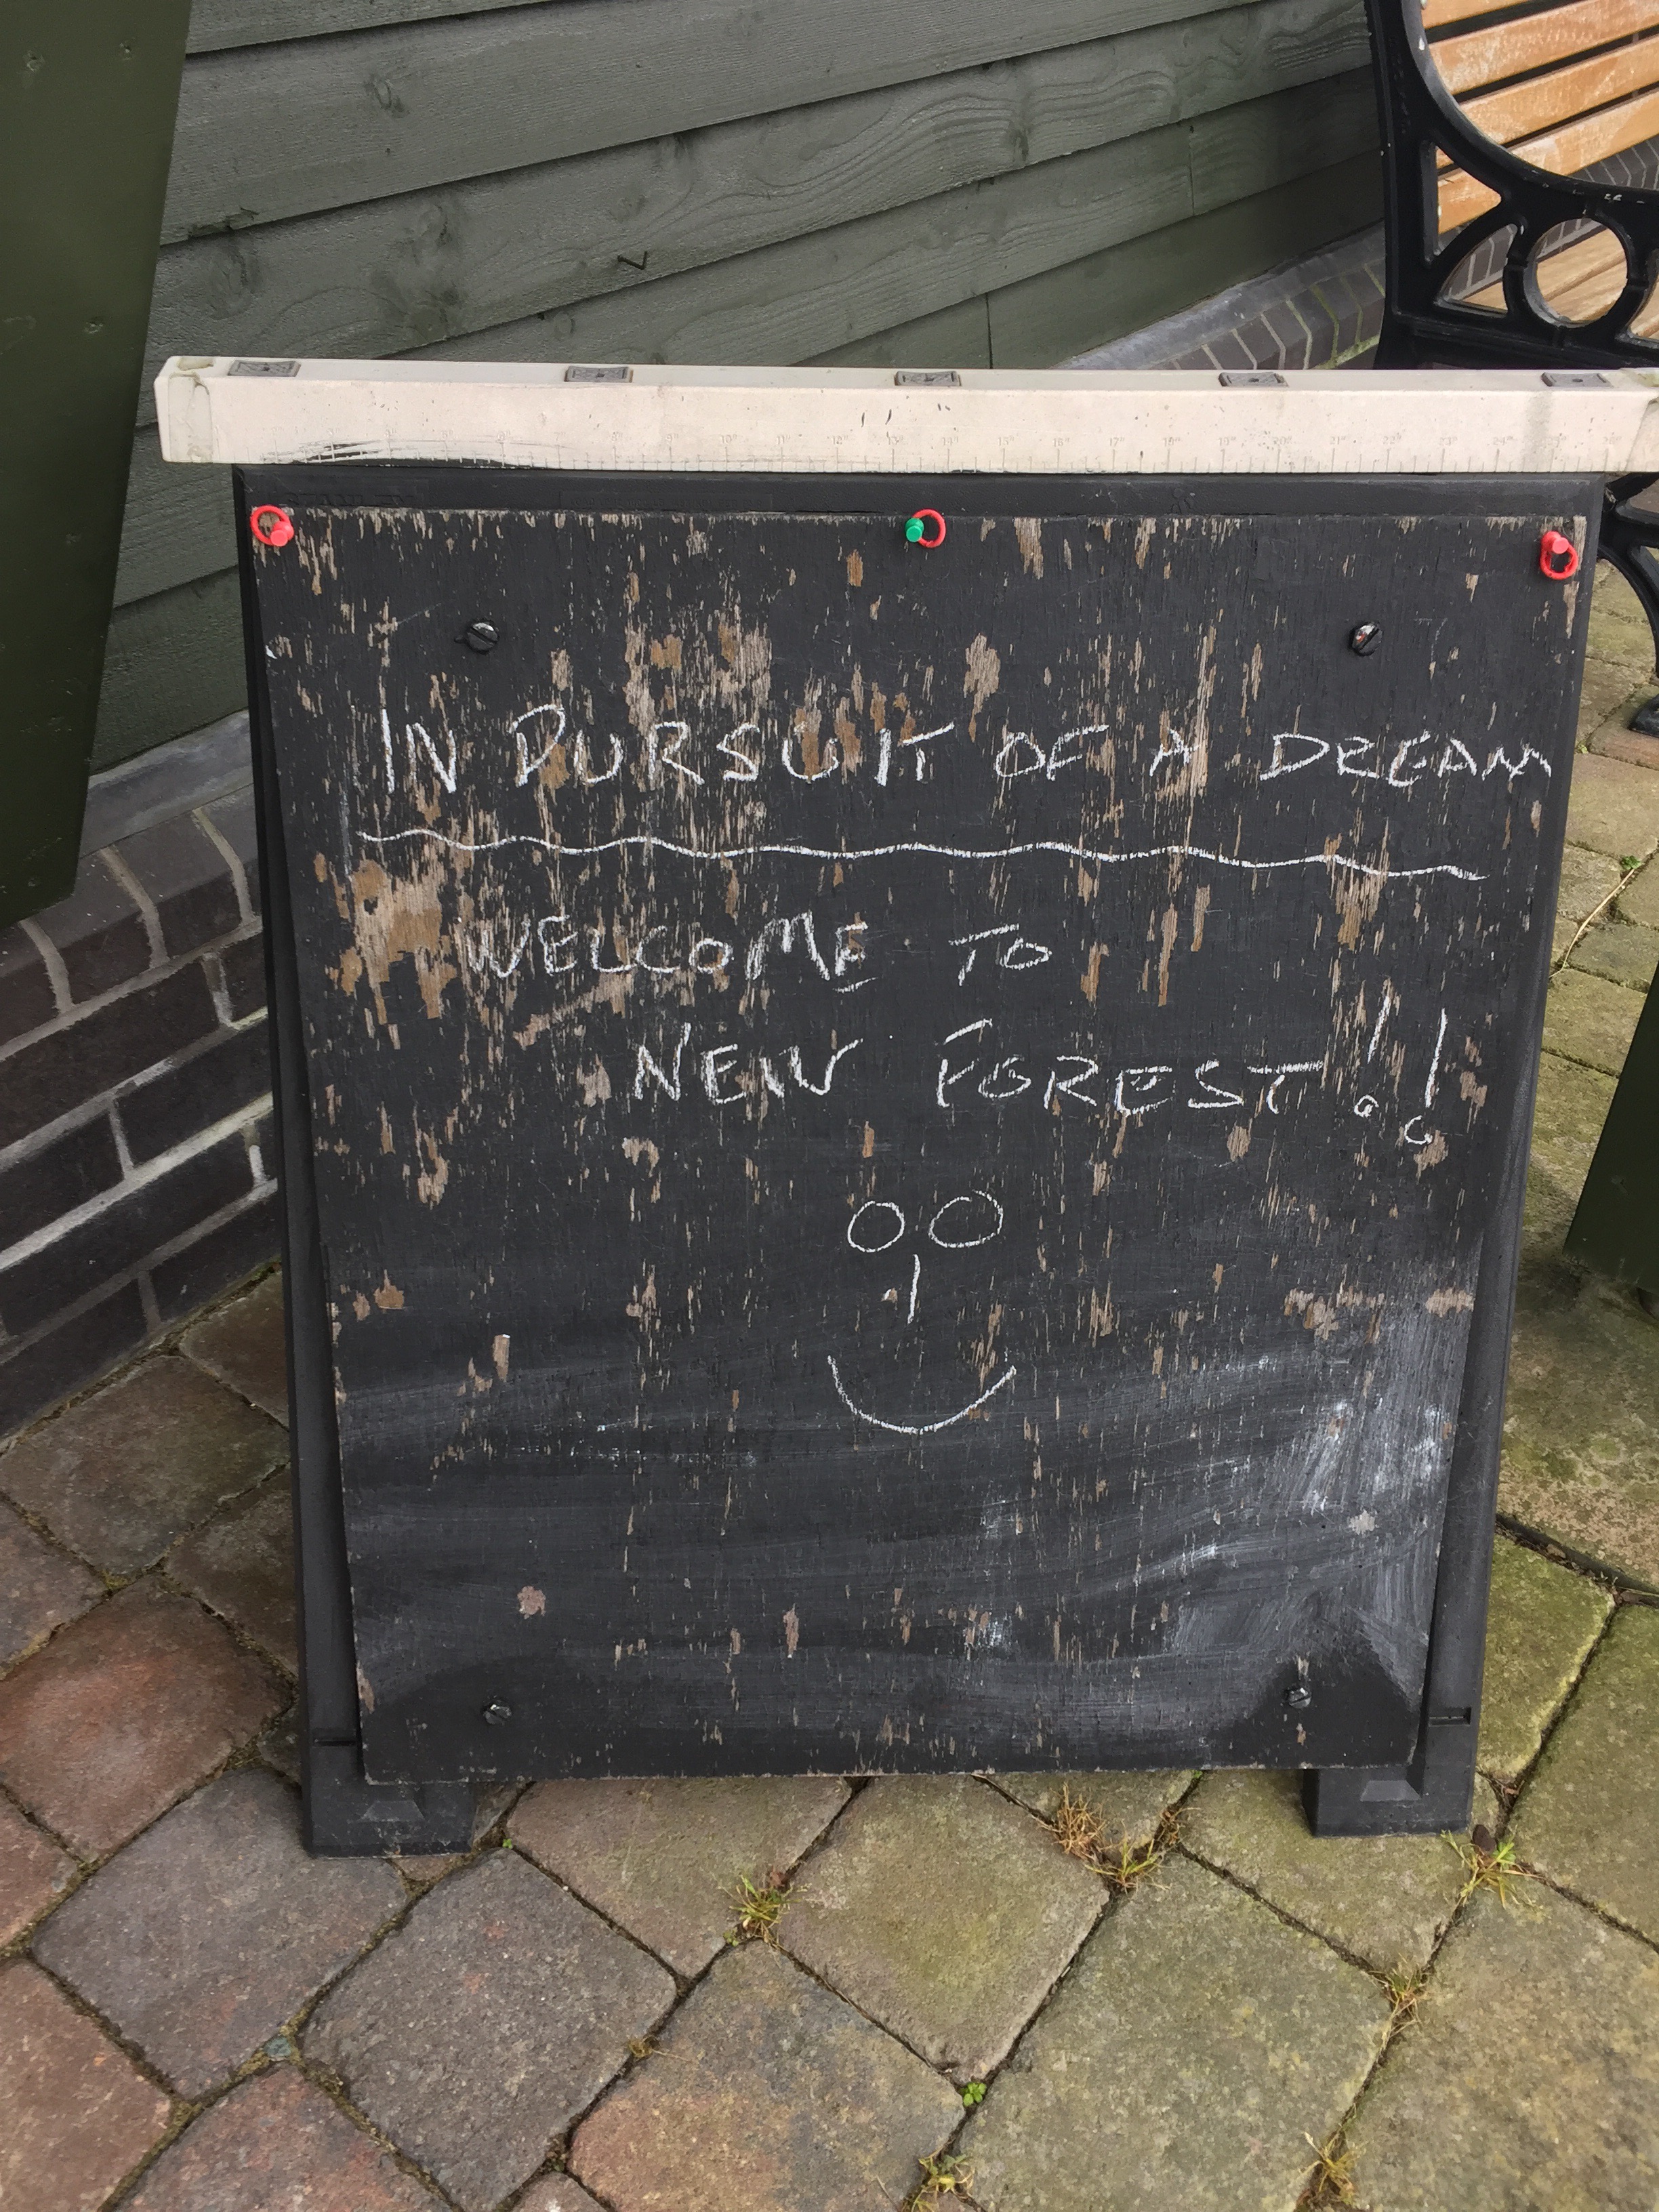 IN PURSUIT OF A DREAM
WELCOME TO
NEW FOREST!!